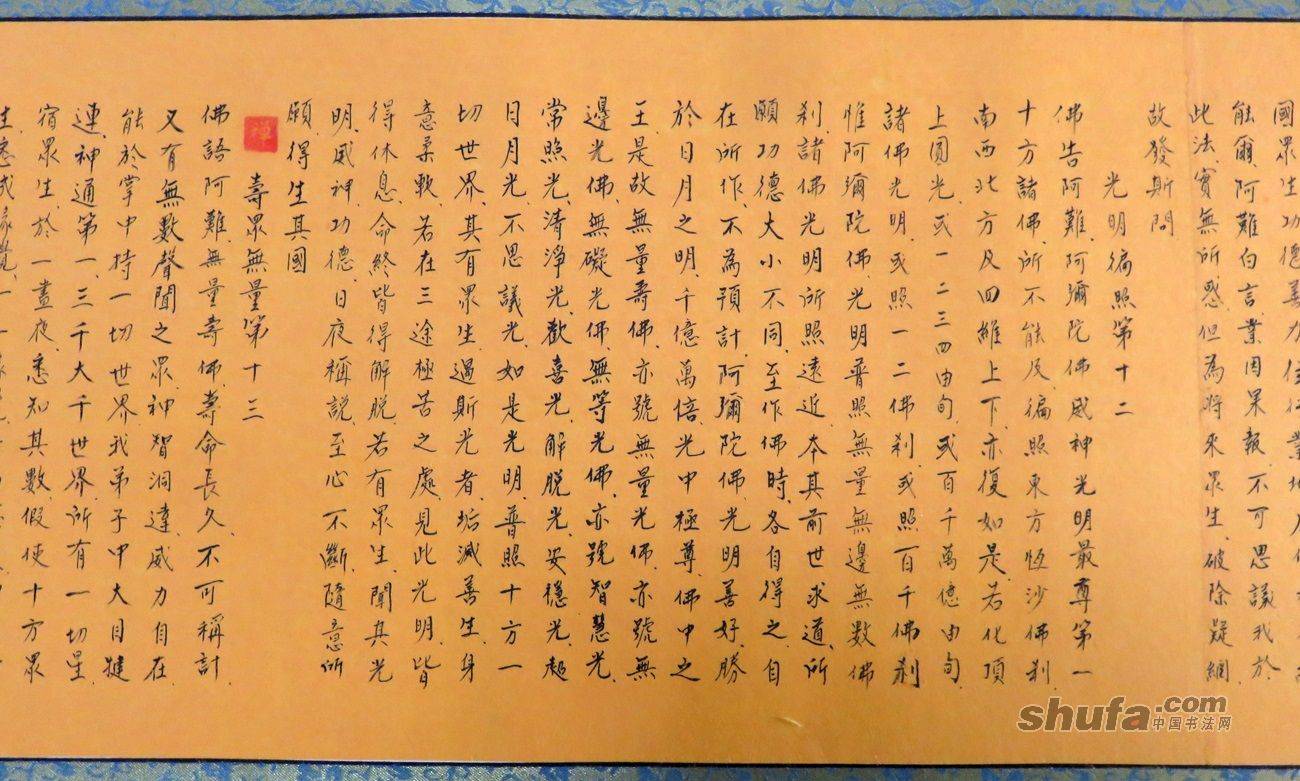 國眾生功德善力住行業地
能爾阿難白言、業因果報、不可思議我於
此法、實無所惑、但為將來眾生、破除疑網、
故發斯問
光明徧照第十二
佛告阿難、阿彌陀佛威神光明最尊第一
十方諸佛、所不能及、徧照東方恆沙佛剎、
南西北方、及四維上下、亦復如是、若化頂
上圓光、或一二三四由旬、或百千萬億由旬、
諸佛光明、或照一二佛剎、或照百千佛剎
惟阿彌陀佛、光明普照無量無邊無數佛
剎、諸佛光明所照遠近、本其前世求道、所
願功德大小不同、至作佛時、各自得之、自
在所作、不為預計、阿彌陀佛、光明善好、勝
於日月之明、千億萬倍、光中極尊、佛中之
王、是故無量壽佛、亦號無量光佛、亦號無
邊光佛、無礙光佛、無等光佛、亦號智慧光、
常照光、清淨光、歡喜光、解脫光、安穩光、超
日月光、不思議光、如是光明、普照十方一
切世界、其有眾生、遇斯光者、垢滅善生、身
意柔軟、若在三途極苦之處、見此光明、皆
得休息、命終皆得解脫、若有眾生、聞其光
明、威神功德、日夜稱說、至心不斷、隨意所
願、得生其國
禪
壽眾無量第十三
佛語阿難、無量壽佛、壽命長久、不可稱計、
又有無數聲聞之眾、神智洞達、威力自在、
能於掌中持一切世界、我弟子中大目犍
連、神通第一、三千大千世界、所有一切星
宿眾生、於一晝夜、悉知其數、假使十方眾
生、悉成緣覺、一一緣覺、
shufa.com
中国书法网